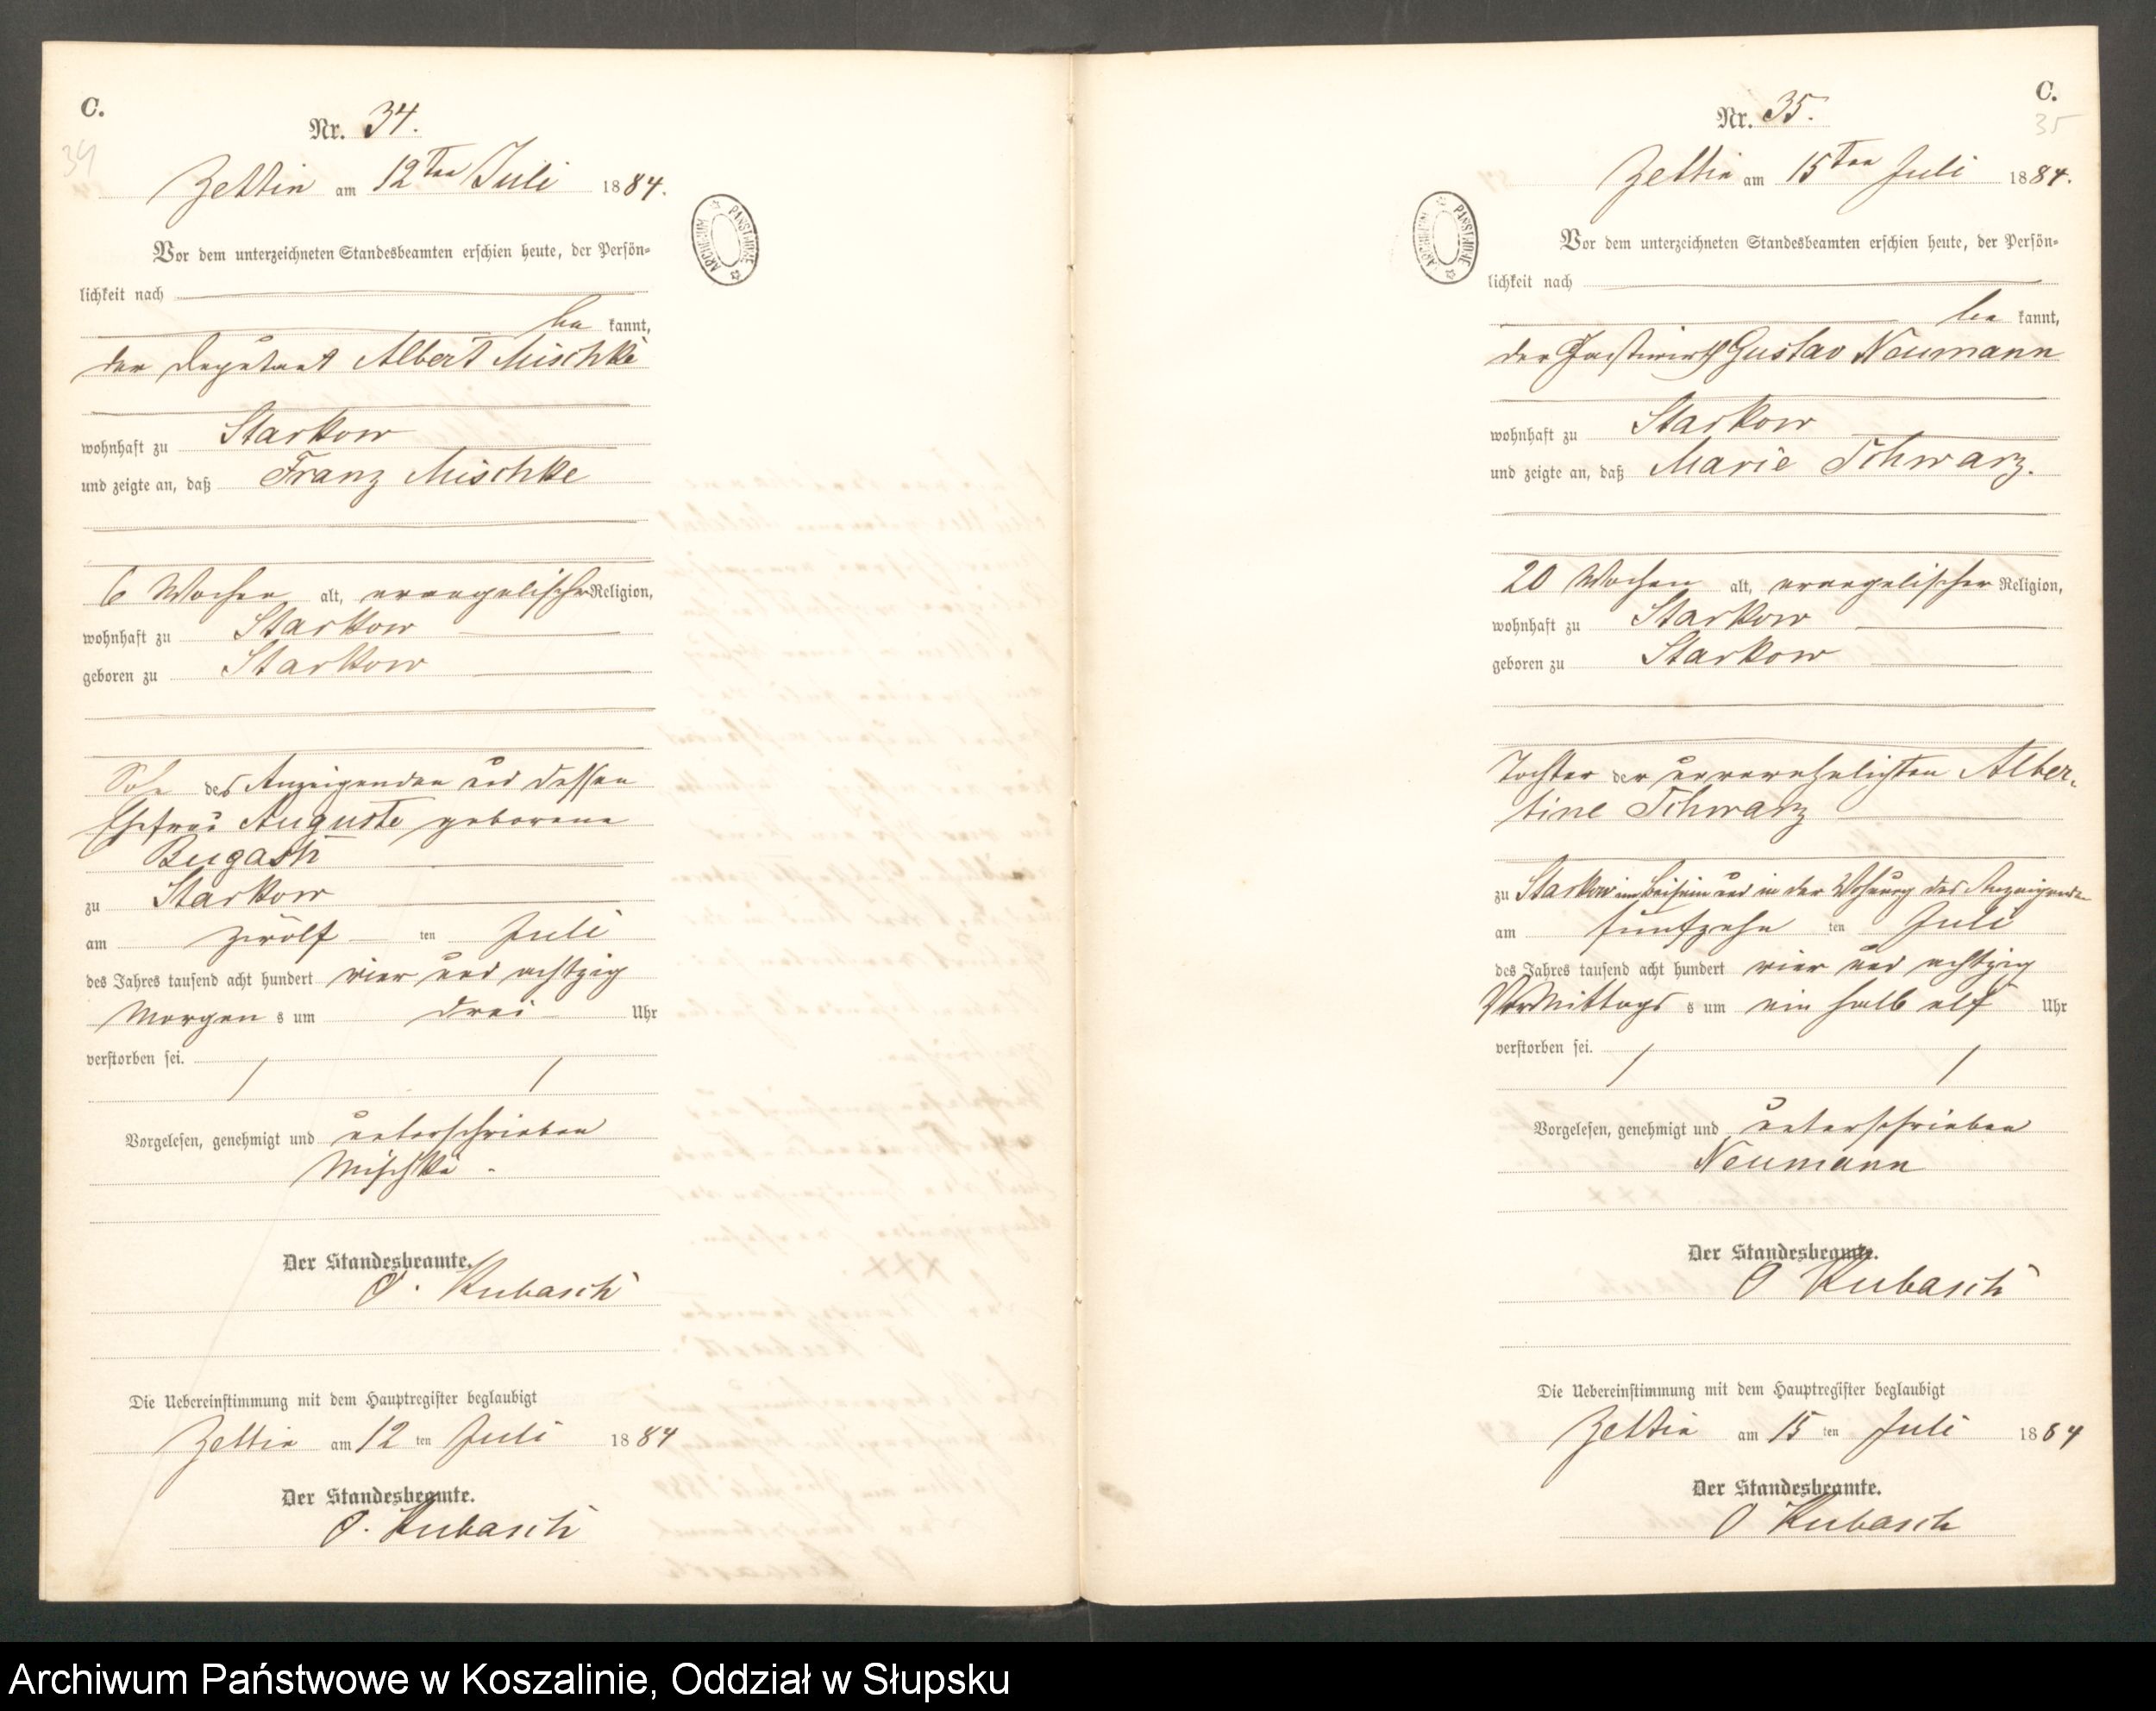 C.
34
Nr. 34.
Zettin am 12ten Juli 1884.
Vor dem unterzeichneten Standesbeamten erschien heute, der Persön-
lichkeit nach
be kannt,
der Deputant Albert Mischke
wohnhaft zu Starkow
und zeigte an, daß Franz Mischke
6 Wochen alt, evangelischer Religion,
wohnhaft zu Starkow
geboren zu Starkow
Sohn des Anzeigenden und dessen
Ehefrau Auguste geborene
Bugasch
zu Starkow
am zwölf ten Juli
des Jahres tausend acht hundert vier und achtzig
Morgen s um drei Uhr
verstorben sei.
Vorgelesen, genehmigt und unterschrieben
Mischke
Der Standesbeamte.
O. Kubasch
Die Uebereinstimmung mit dem Hauptregister beglaubigt
Zettin am 12 ten Juli 1884
Der Standesbeamte.
O. Kubasch
ARCHIWUM PAŃSTWOWE
C.
35
Nr. 35.
Zettin am 15ten Juli 1884.
Vor dem unterzeichneten Standesbeamten erschien heute, der Persön-
lichkeit nach
be kannt,
der Gastwirth Gustav Neumann
wohnhaft zu Starkow
und zeigte an, daß Marie Schwarz.
20 Wochen alt, evangelischer Religion,
wohnhaft zu Starkow
geboren zu Starkow
Tochter der unverehelichten Alber-
tine Schwarz
zu Starkow im Beisein und in der Wohnung des Anzeigenden
am fünfzehn ten Juli
des Jahres tausend acht hundert vier und achtzig
VorMittags s um ein halb elf Uhr
verstorben sei.
Vorgelesen, genehmigt und unterschrieben
Neumann
Der Standesbeamte.
O Kubasch
Die Uebereinstimmung mit dem Hauptregister beglaubigt
Zettin am 15 ten Juli 1884
Der Standesbeamte.
O Kubasch
ARCHIWUM PAŃSTWOWE
Archiwum Państwowe w Koszalinie, Oddział w Słupsku